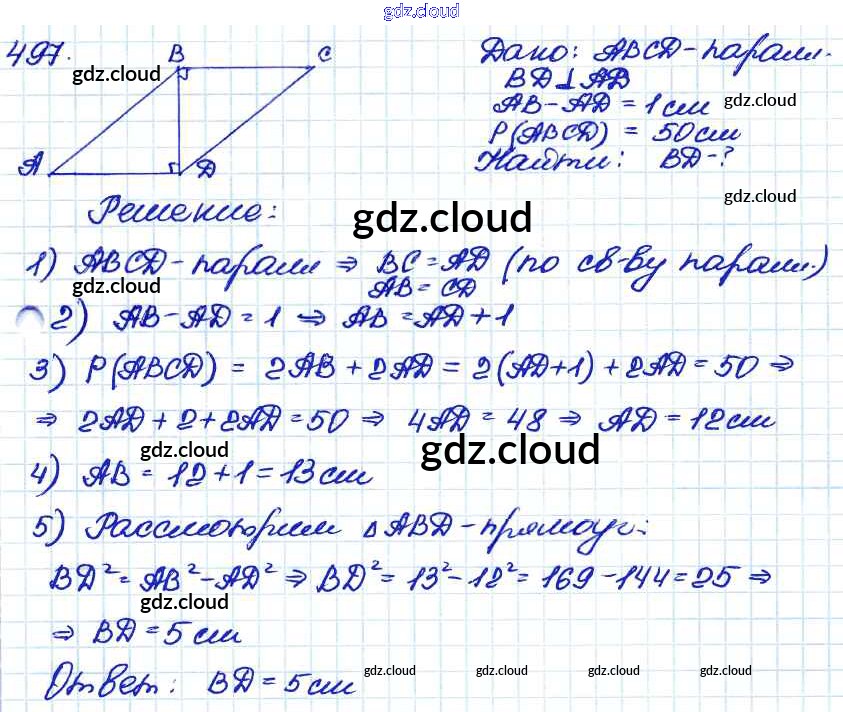 gdz.cloud
497.
B C
gdz.cloud
A D
Дано: ABCD - паралл.
BD ⊥ AD
AB - AD = 1 см
gdz.cloud
P(ABCD) = 50 см
Найти: BD - ?
gdz.cloud
Решение:
gdz.cloud
1) ABCD - паралл ⇒ BC = AD (по св-ву паралл.)
AB = CD
gdz.cloud
2) AB - AD = 1 ⇒ AB = AD + 1
3) P(ABCD) = 2AB + 2AD = 2(AD+1) + 2AD = 50 ⇒
⇒ 2AD + 2 + 2AD = 50 ⇒ 4AD = 48 ⇒ AD = 12 см
gdz.cloud
gdz.cloud
4) AB = 12 + 1 = 13 см
5) Рассмотрим △ABD - прямоуг.:
BD² = AB² - AD² ⇒ BD² = 13² - 12² = 169 - 144 = 25 ⇒
gdz.cloud
⇒ BD = 5 см
gdz.cloud gdz.cloud gdz.cloud gdz.cloud
Ответ: BD = 5 см